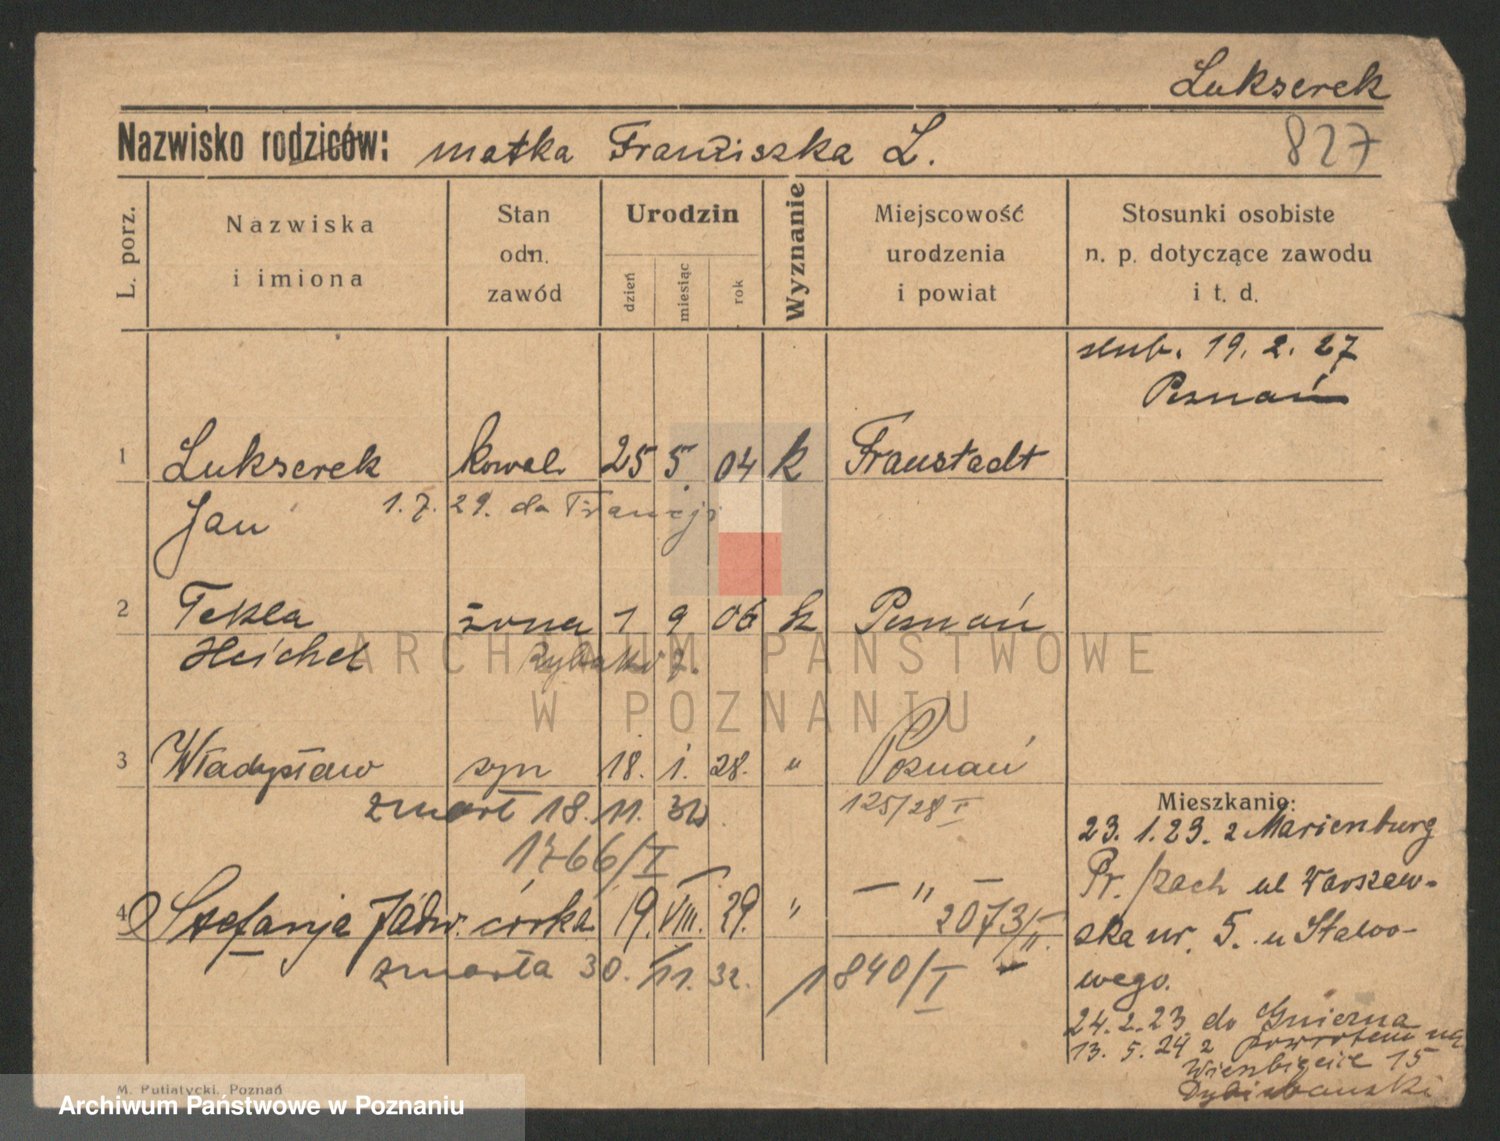 Lukserek
Nazwisko rodziców: matka Franziszka L.
827
L. porz.
Nazwiska
i imiona
Stan
odn.
zawód
Urodzin
dzień
miesiąc
rok
Wyznanie
Miejscowość
urodzenia
i powiat
Stosunki osobiste
n. p. dotyczące zawodu
i t. d.
slub. 19. 2. 27
Poznań
1 Lukserek kowal 25 5. 04 k Fraustadt
Jan 1. 7. 29. do Francji
2 Tekla żona 1 9 06 k Poznań
Heichel Rybaki 7.
3 Władysław syn 18. 1. 28. " Poznań
zmarł 18. 11. 32. 125/28 I
1766/I
4 Stefanja Jadw. córka 19. VIII. 29. " — " —
2073/II.
zmarła 30. 11. 32. 1840/I
Mieszkanie:
23. 1. 23. z Marienburg
Pr. ul Warszaw-
ska nr. 5. u Stawo-
wego.
24. 2. 23 do Gniezna
13. 5. 24 z powrotem na
15
ARCHIWUM PAŃSTWOWE
W POZNANIU
M. Putiatycki, Poznań
Archiwum Państwowe w Poznaniu